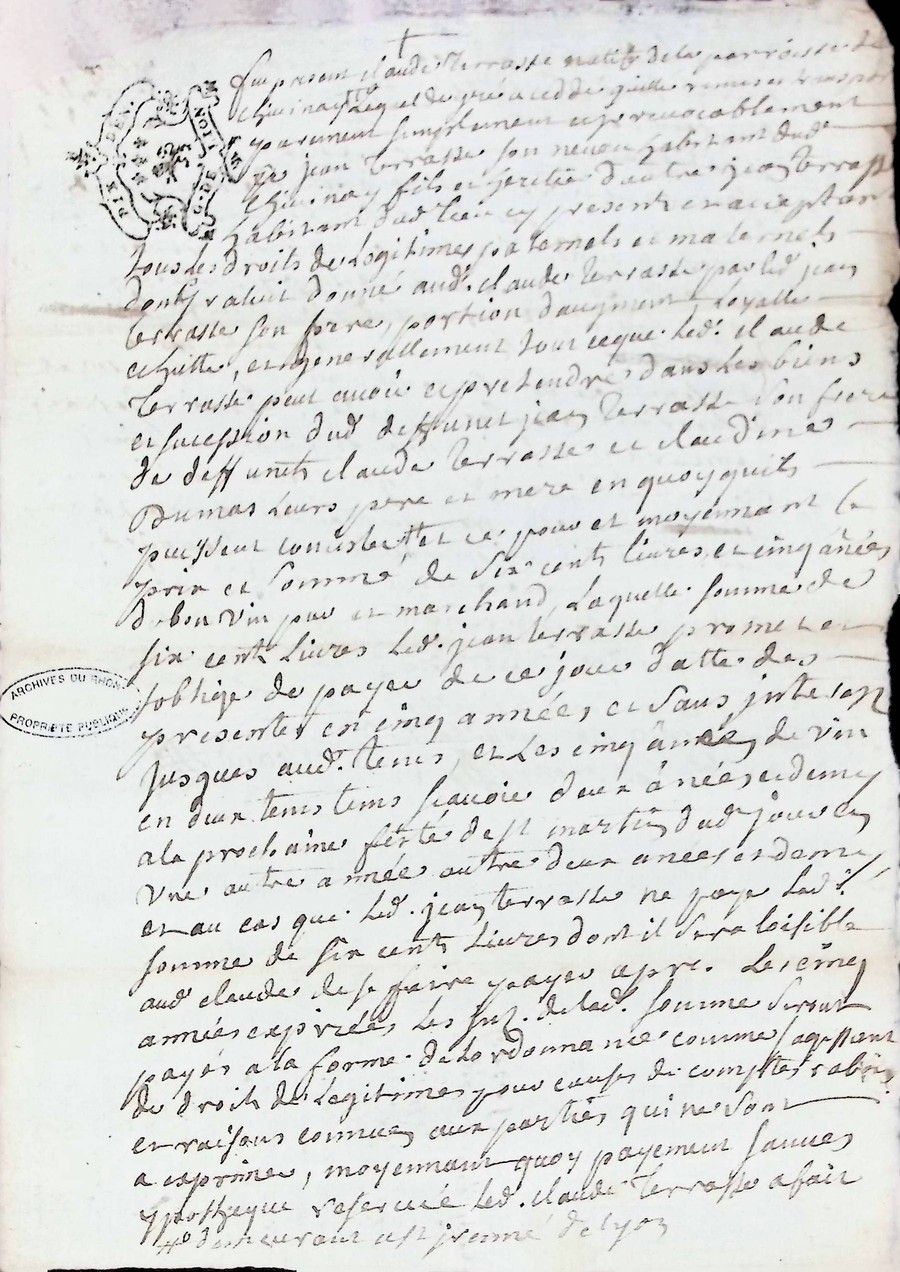 fut présent Claude Terrasse natif de la parroisse de
Chivinay # Lequel de gré a cedde quitte remis et transporté
purement simplement et irrevocablement
a jean Terrasse son neveu habitant dud.
Chivinay fils et heritier d'autre jean Terrasse
habitant dud. lieu cy present et acceptant
tous les droits de Legitimes paternels et maternels
dont avoit donné aud. Claude Terrasse par led. jean
Terrasse son frere, portion d'augment Loyalle
echutte, et generallement tout ce que led. Claude
Terrasse peut avoir et pretendre dans Les biens
et sucession dud. deffunct jean Terrasse son frere
de deffuncts Claude Terrasse et Claudine
Dumas Leurs pere et mere en quoy quils
puissent consister et ce pour et moyennant le
prix et somme de six cents livres et cinq anées
de bon vin pur et marchand, Laquelle somme de
six cents Livres Led. jean terrasse promet et
s'oblige de payer de ce jour datte des
presentes en cinq années, et sans interest
jusques aud. tems, et Les cinq anées de vin
en deux tems scavoir deux anées et demy
a la prochaine fette de st martin dud. jour en
une autre année autre deux anees et demy
et au cas que Led. jean terrasse ne paye Lad.
somme de six cents Livres dont il sera loisible
aud. claude de se faire payer apres Les cinq
années expirées Les de lad. somme seront
payés a la forme de Lordonnance comme sagissant
de droits de Legitimes pour causes de comptes
et raisons connues aux parties qui ne sont
a exprimer, moyennant quoy payement sauves
ypotheque reservée Led. Claude Terrasse a fait
# demeurant a st de Lyon
DIX DEN.
G. DE LION
ARCHIVES DU RHONE
PROPRIÉTÉ PUBLIQUE